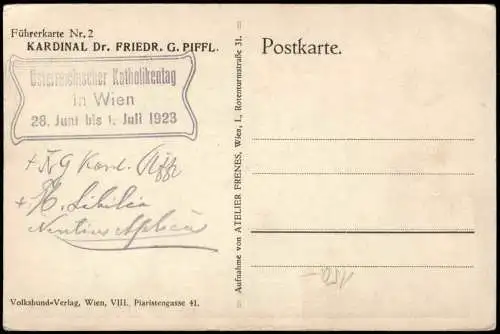 Führerkarte Nr. 2
KARDINAL Dr. FRIEDR. G. PIFFL.
Postkarte.
Österreichischer Katholikentag
in Wien
28. Juni bis 1. Juli 1923
+ F G Kard. Piffl
+ H. Sibilia
Nuntius Aplicus
Aufnahme von ATELIER FRENES, Wien, I., Rotenturmstraße 31.
Volksbund-Verlag, Wien, VIII. Piaristengasse 41.